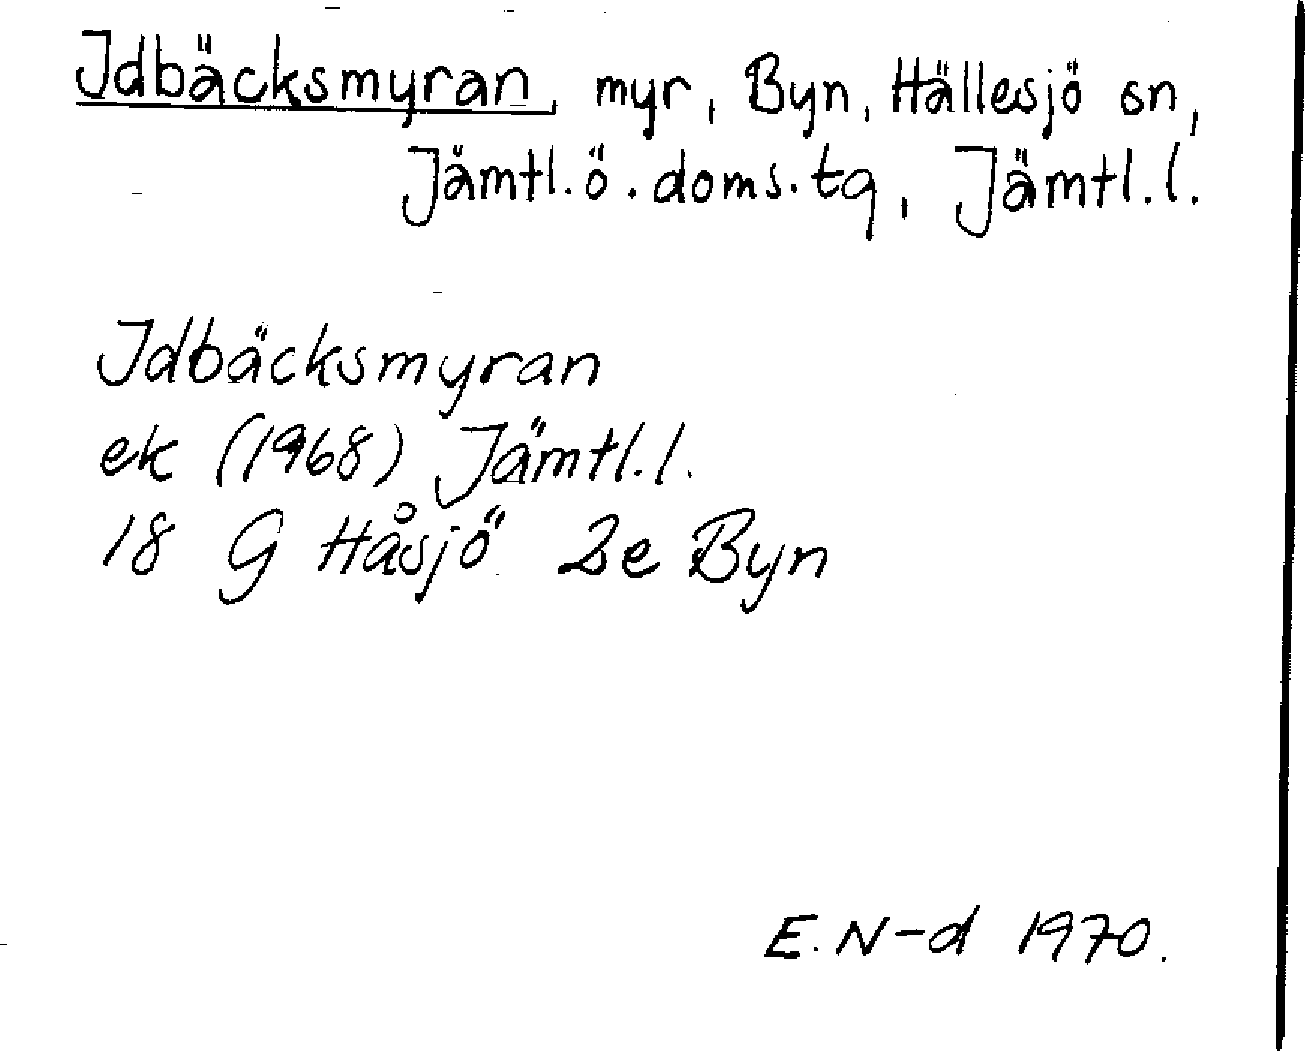 Idbäcksmyran, myr, Byn, Hällesjö sn,
Jämtl.ö.doms.tg, Jämtl.l.
Idbäcksmyran
ek (1968) Jämtl.l.
18 G Håsjö 2e Byn
E. N-d 1970.